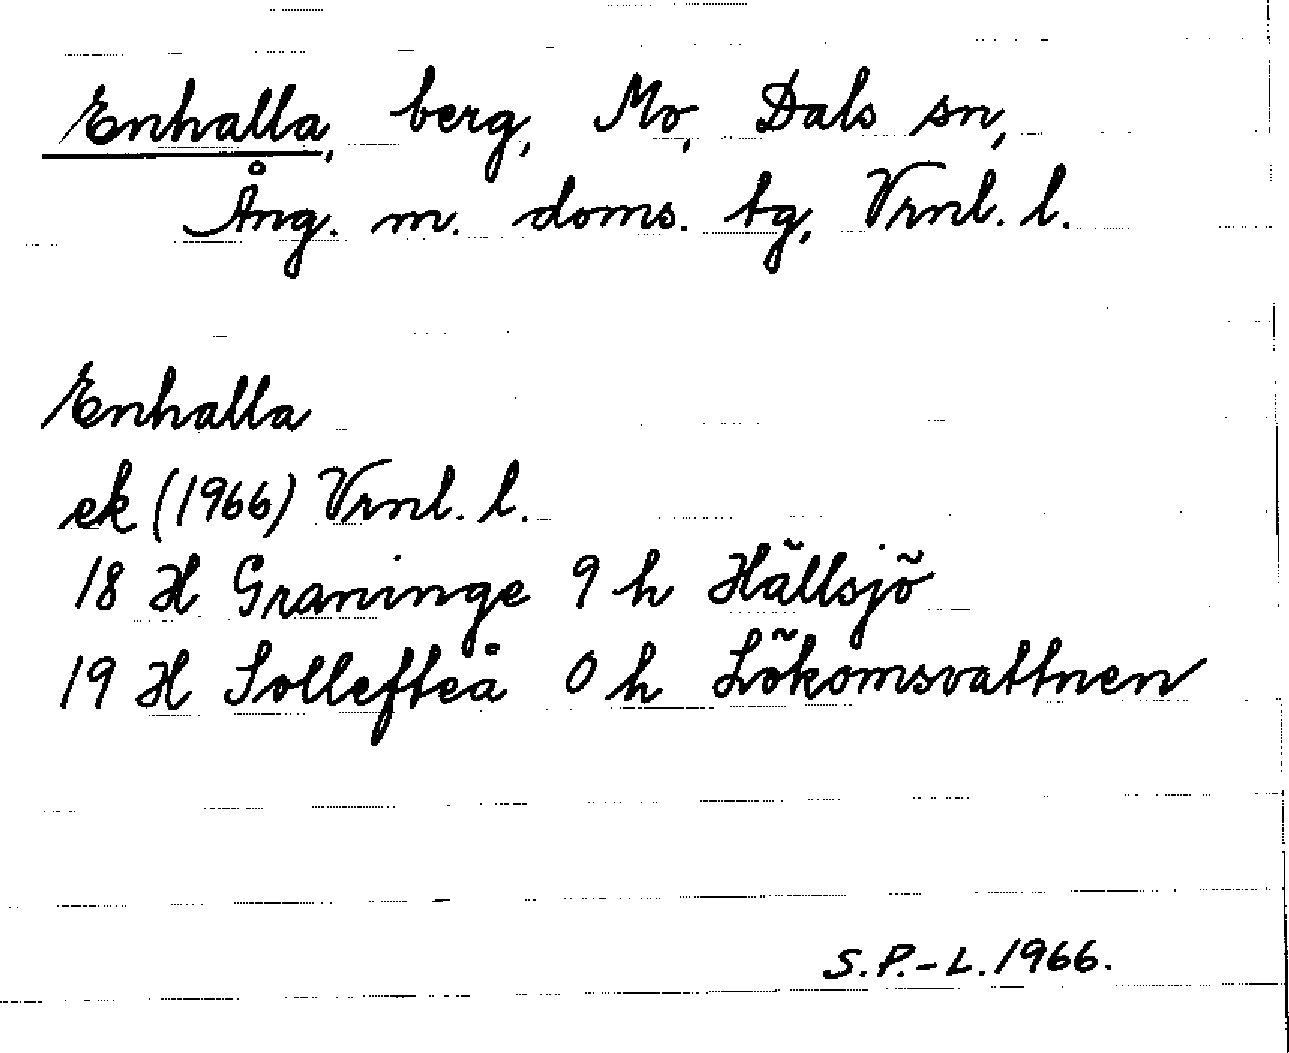 Enhalla, berg, Mo, Dals sn,
Ång. m. doms. tg, Vrnl. l.
Enhalla
ek (1966) Vrnl. l.
18 H Graninge 9 h Hällsjö
19 H Sollefteå 0 h Lökomsvattnen
S.P.-L. 1966.